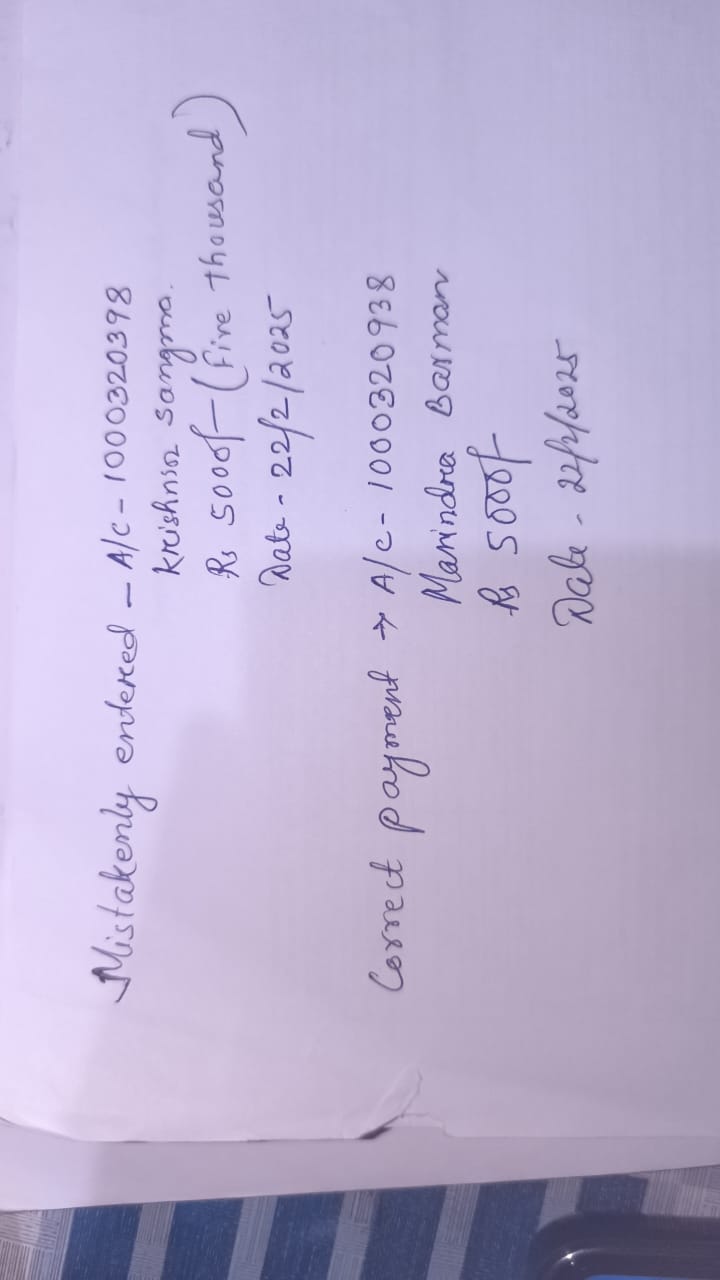 Mistakenly entered - A/c - 1000320398
Krishnioz Sangma.
Rs 5000/- (five thousand)
Date - 22/2/2025
Correct payment → A/c - 1000320938
Manindra Barman
Rs 5000/-
Date - 22/2/2025